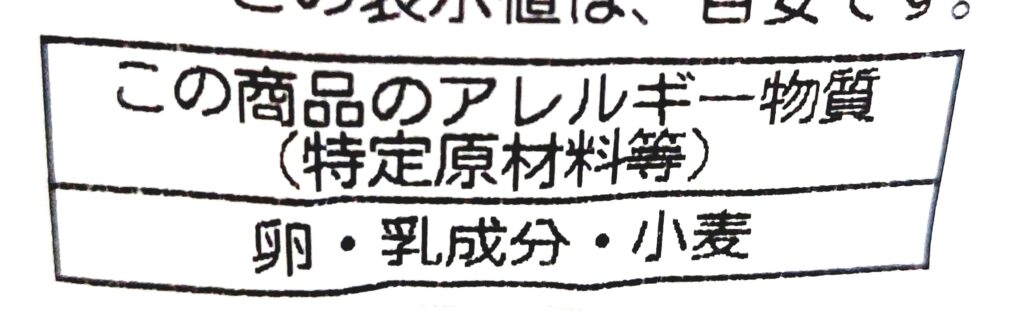 この表示値は、目安です。
この商品のアレルギー物質
（特定原材料等）
卵・乳成分・小麦